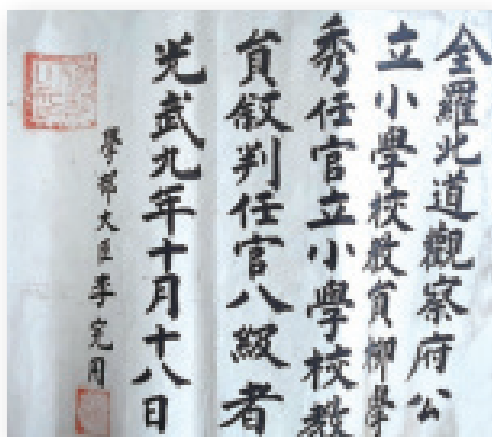 全羅北道觀察府公
立小學校敎員柳學
秀任官立小學校敎
員敍判任官八級者
光武九年十月十八日
學部大臣李完用